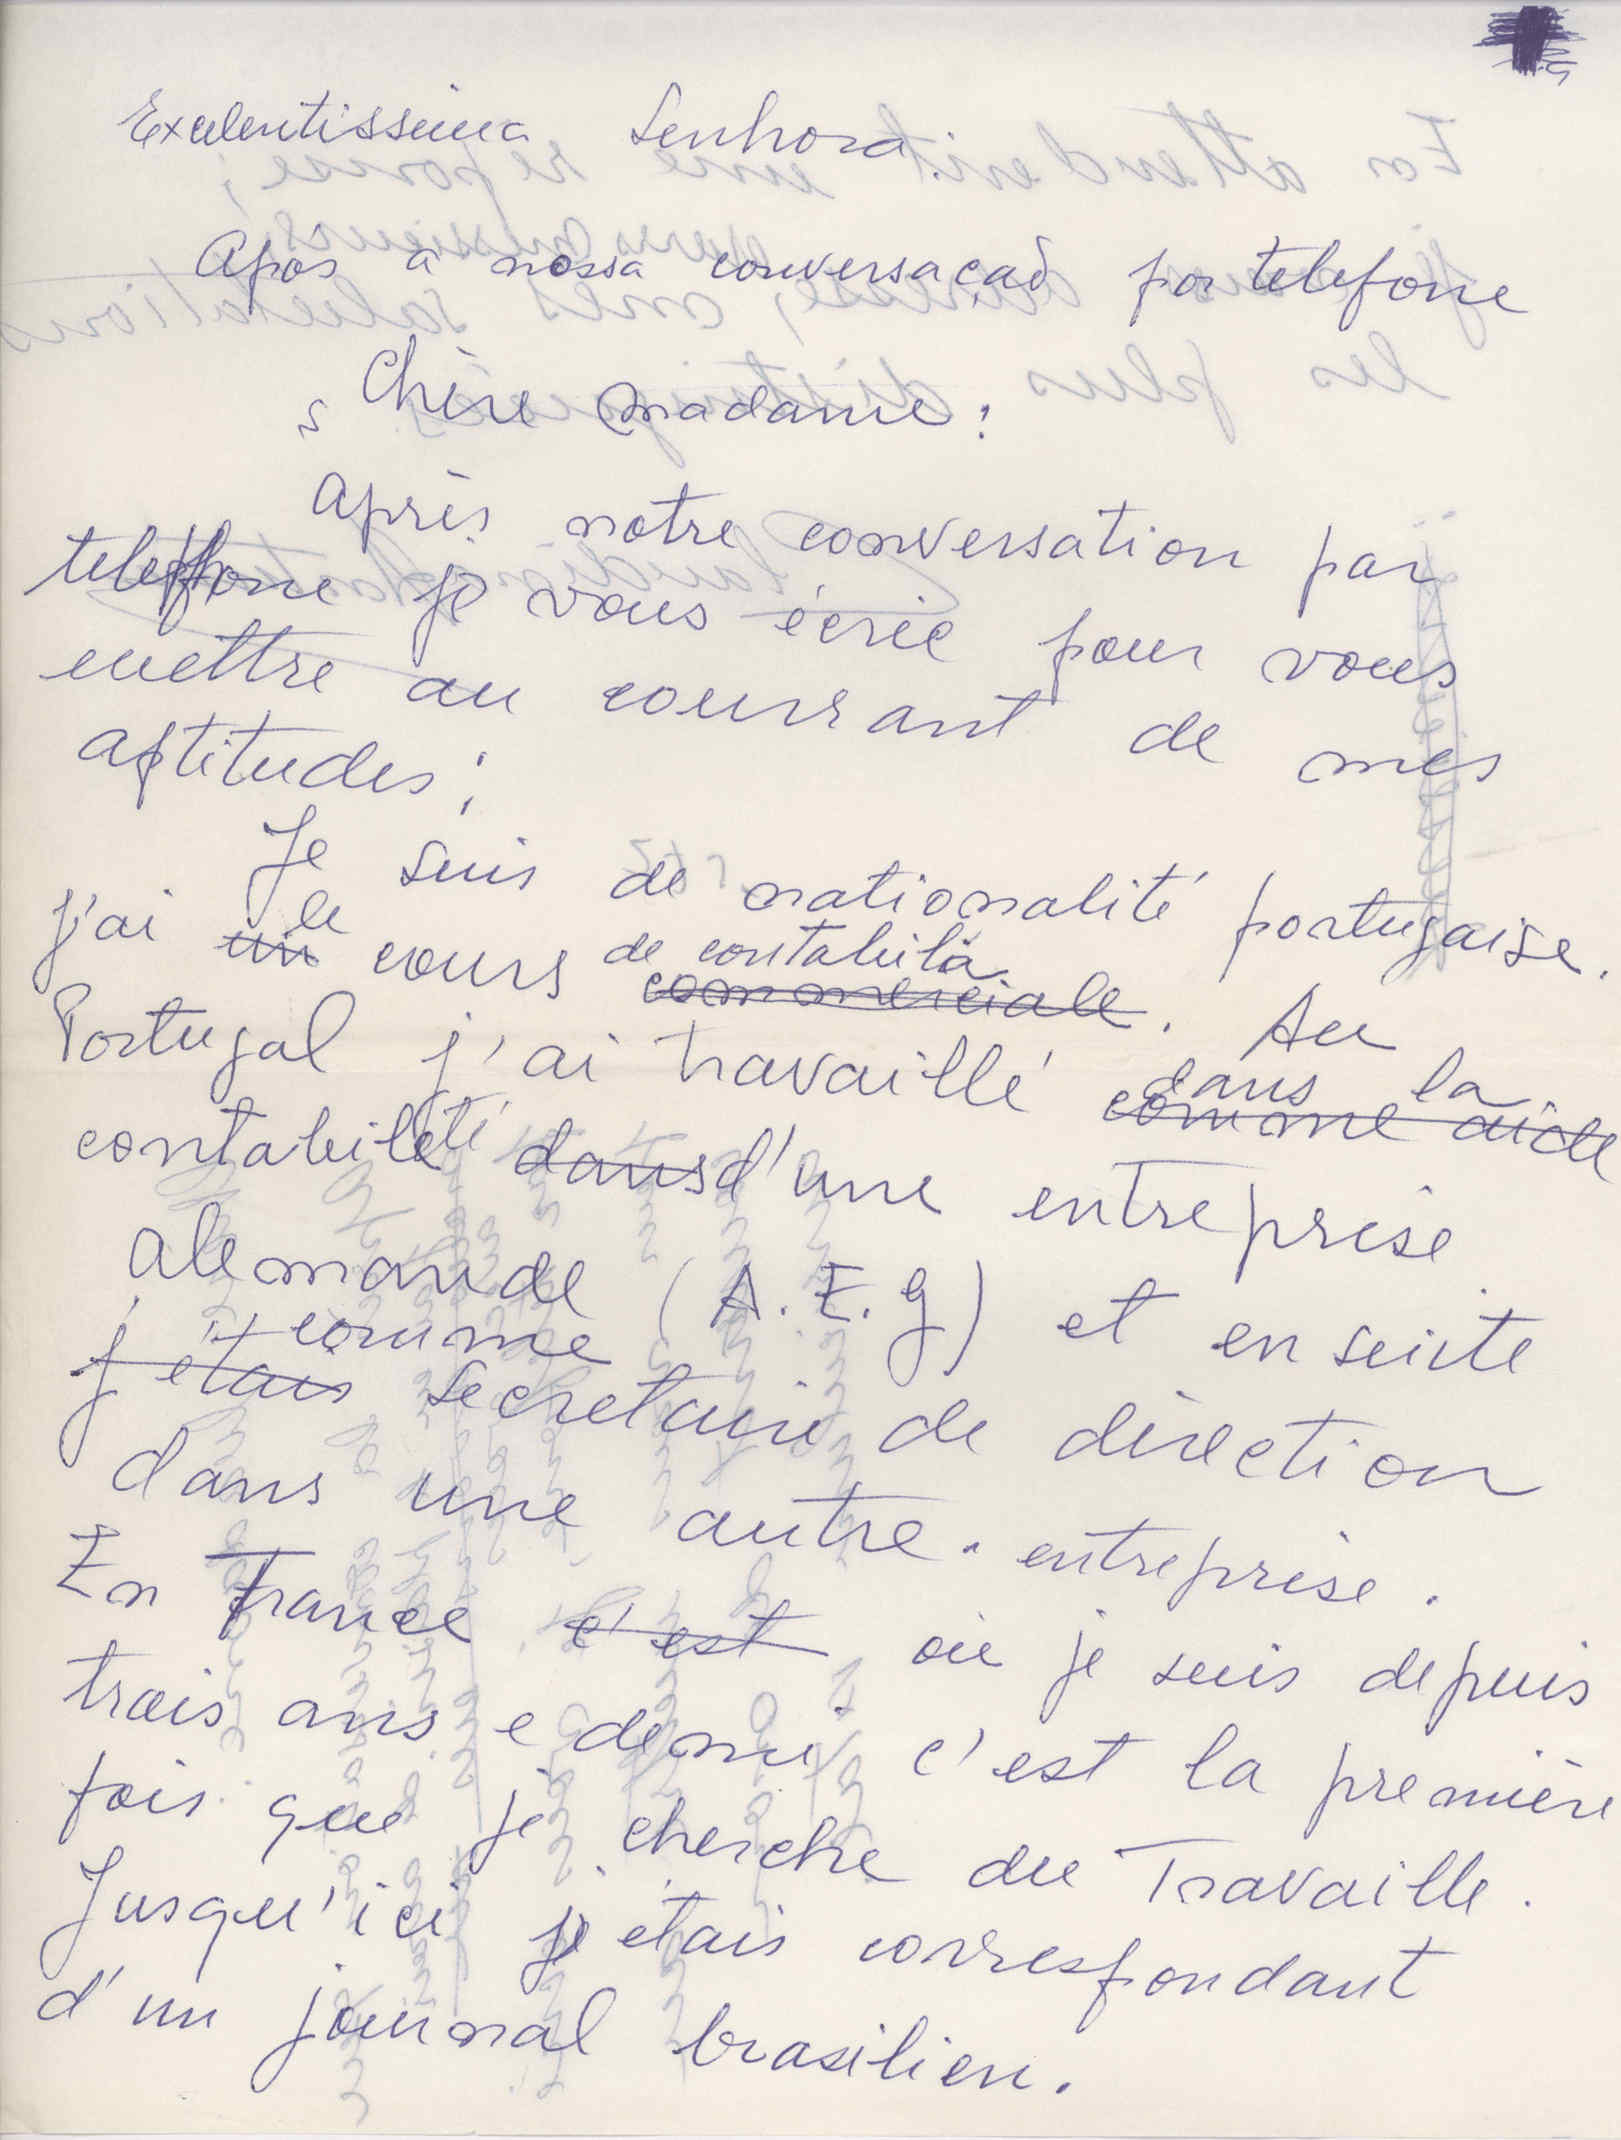 Excelentissima Senhora
Após a nossa conversação por telefone
Chère madame:
Après notre conversation par
telephone je vous écrie pour vous
mettre au courrant de mes
aptitudes:
Je suis de nationalité portugaise.
J'ai un le cours commerciale de contabilia. Au
Portugal j'ai travaillé comme aide dans la
contabileté dans d'une entreprise
alemande (A.E.G) et en suite
j'étais comme secretaire de direction
dans une autre entreprise.
En France c'est où je suis depuis
trois ans e demi c'est la première
fois que je cherche du Travaille.
Jusqu'ici je étais correspondant
d'un journal brasilien.